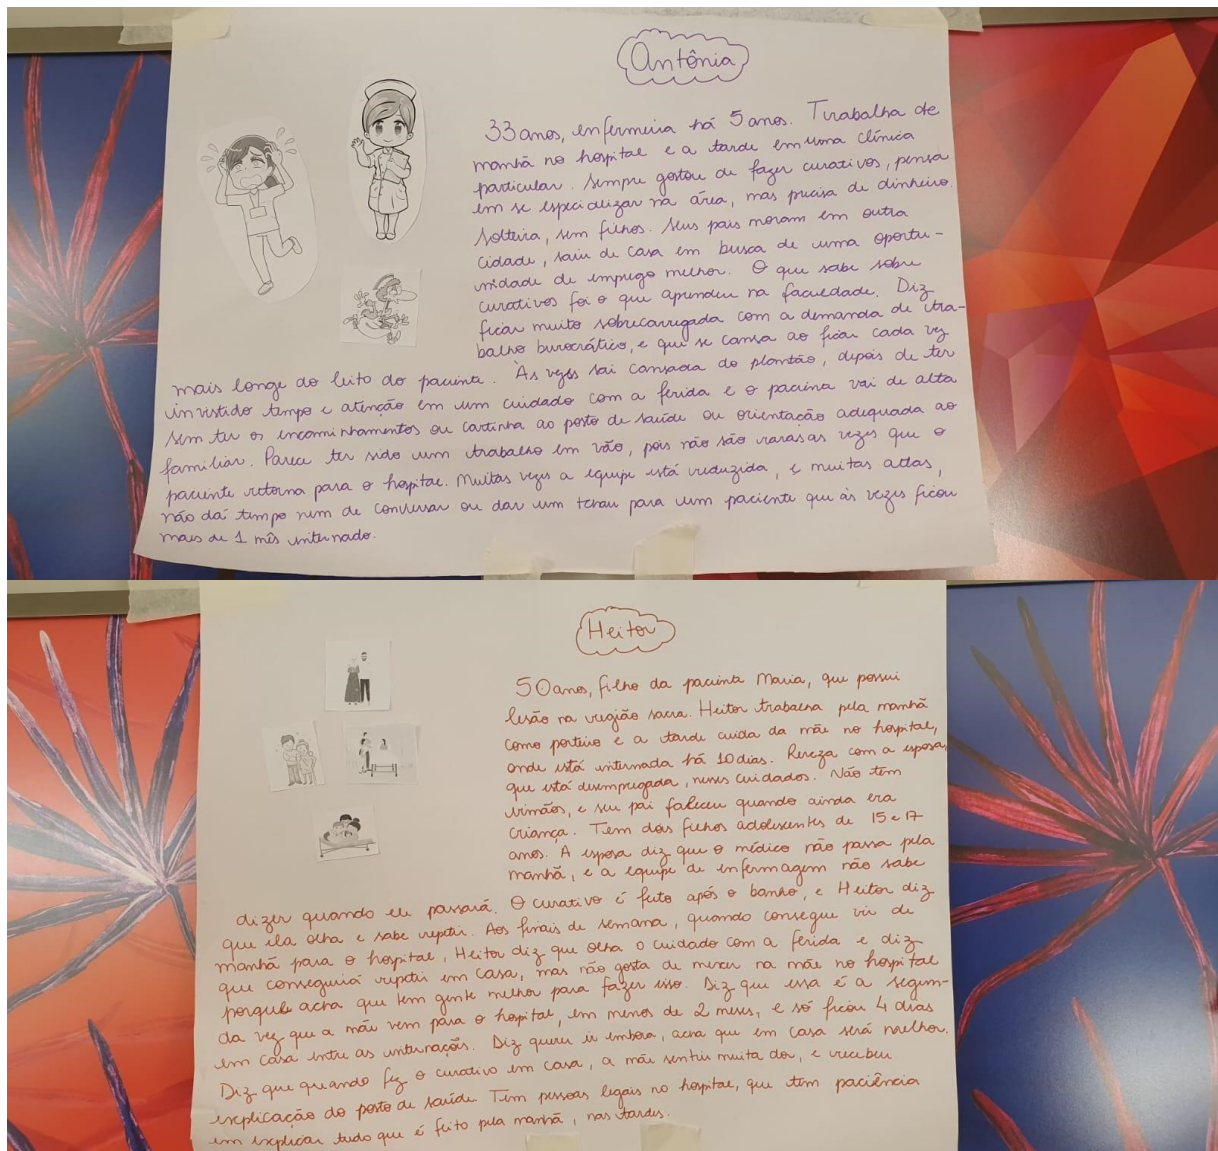 Antônia
33 anos, enfermeira há 5 anos. Trabalha de
manhã no hospital e a tarde em uma clínica
particular. Sempre gostou de fazer curativos, pensa
em se especializar na área, mas precisa de dinheiro.
Solteira, sem filhos. Seus pais moram em outra
cidade, saiu de casa em busca de uma oportu-
nidade de emprego melhor. O que sabe sobre
curativos foi o que aprendeu na faculdade. Diz
ficar muito sobrecarregada com a demanda de tra-
balho burocrático, e que se cansa ao ficar cada vez
mais longe do leito do paciente. Às vezes sai cansada do plantão, depois de ter
investido tempo e atenção em um cuidado com a ferida e o paciente vai de alta
sem ter os encaminhamentos ou cartinha ao posto de saúde ou orientação adequada ao
familiar. Parece ter sido um trabalho em vão, pois não são raras as vezes que o
paciente retorna para o hospital. Muitas vezes a equipe está reduzida, e muitas altas,
não dá tempo nem de conversar ou dar um tchau para um paciente que às vezes ficou
mais de 1 mês internado.
Heitor
50 anos, filho da paciente Maria, que possui
lesão na região sacra. Heitor trabalha pela manhã
como porteiro e a tarde cuida da mãe no hospital,
onde está internada há 10 dias. Reveza com a esposa,
que está desempregada, nesses cuidados. Não tem
irmãos, e seu pai faleceu quando ainda era
criança. Tem dois filhos adolescentes de 15 e 17
anos. A esposa diz que o médico não passa pela
manhã, e a equipe de enfermagem não sabe
dizer quando ele passará. O curativo é feito após o banho, e Heitor diz
que ela olha e sabe repetir. Aos finais de semana, quando consegue vir de
manhã para o hospital, Heitor diz que olha o cuidado com a ferida e diz
que conseguirá repetir em casa, mas não gosta de mexer na mãe no hospital
porque acha que tem gente melhor para fazer isso. Diz que essa é a segun-
da vez que a mãe vem para o hospital, em menos de 2 meses, e só ficou 4 dias
em casa entre as internações. Diz querer ir embora, acha que em casa será melhor.
Diz que quando fez o curativo em casa, a mãe sentiu muita dor, e recebeu
explicação do posto de saúde. Tem pessoas legais no hospital, que tem paciência
em explicar tudo que é feito pela manhã, nas tardes.